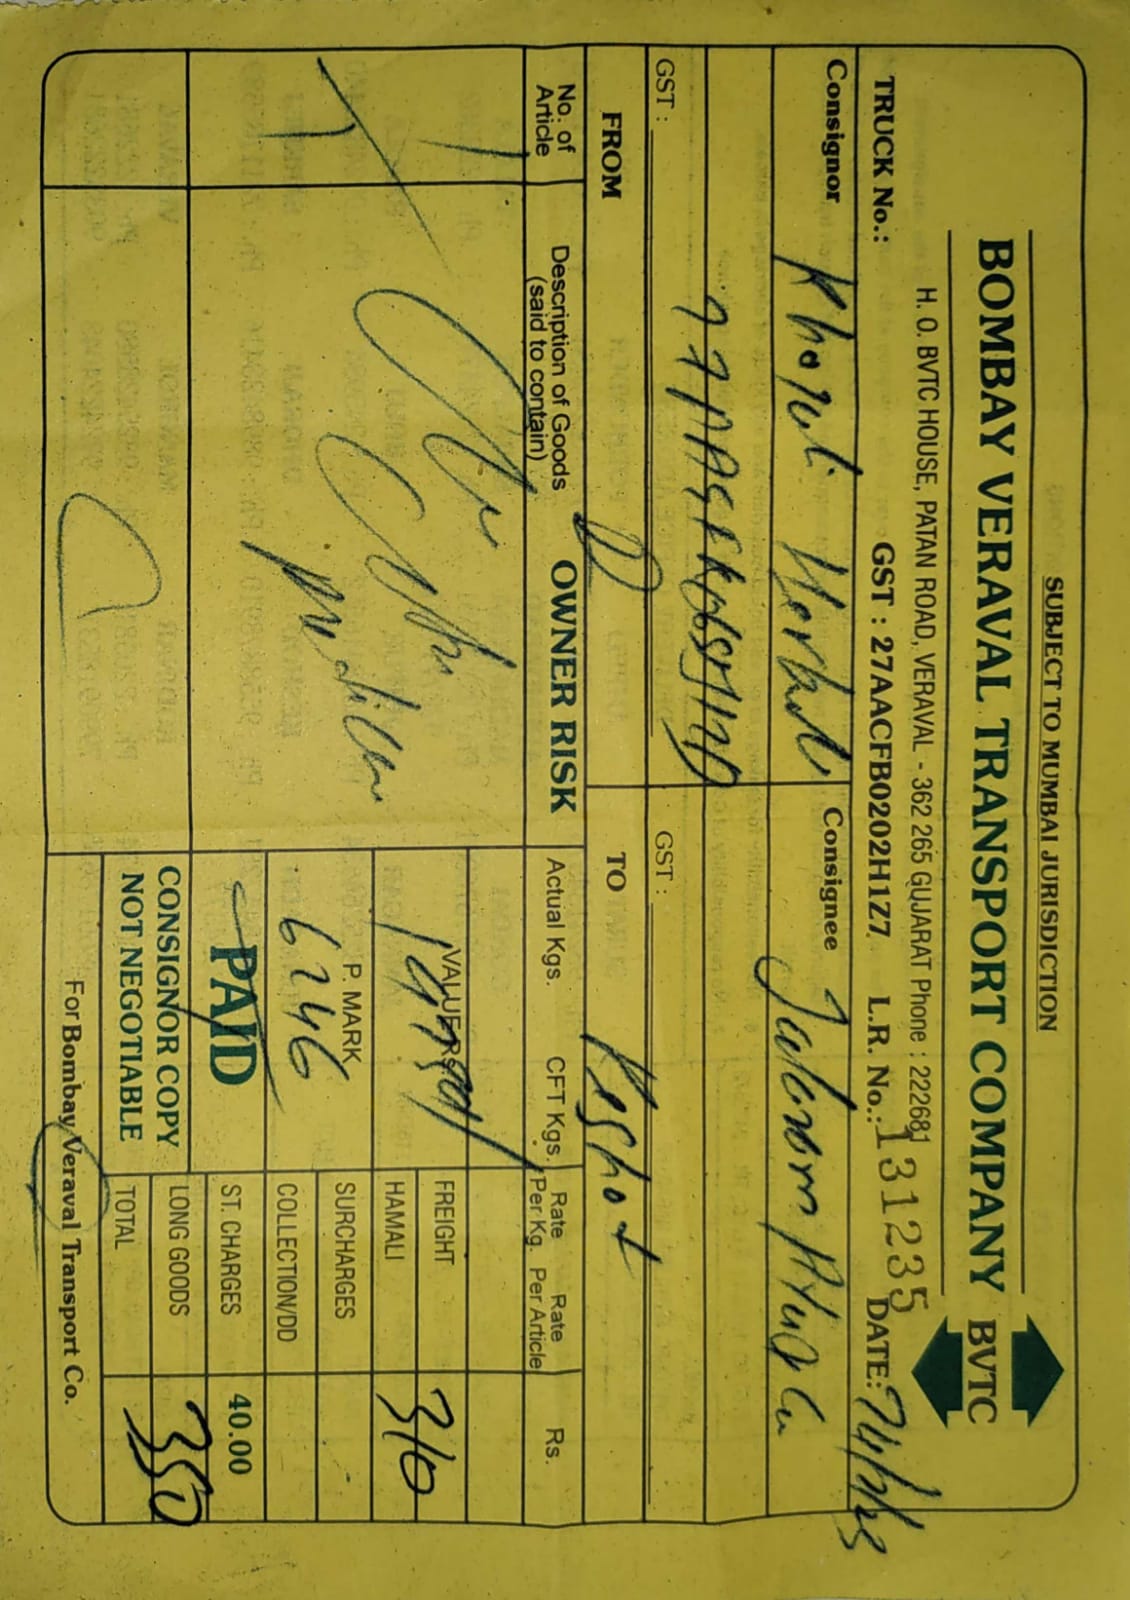 SUBJECT TO MUMBAI JURISDICTION
BOMBAY VERAVAL TRANSPORT COMPANY
BVTC
H. O. BVTC HOUSE, PATAN ROAD, VERAVAL - 362 265 GUJARAT Phone : 222681
TRUCK No.: GST : 27AACFB0202H1Z7 L.R. No.: 131235 DATE:
Consignor Consignee
GST : GST :
FROM TO
No. of Article
Description of Goods (said to contain)
OWNER RISK
Actual Kgs. CFT Kgs. Rate Per Kg. Rate Per Article Rs.
VALUE RS.
FREIGHT 310
HAMALI
P. MARK
6246
SURCHARGES
COLLECTION/DD
PAID
ST. CHARGES 40.00
CONSIGNOR COPY
NOT NEGOTIABLE
LONG GOODS
TOTAL 350
For Bombay Veraval Transport Co.